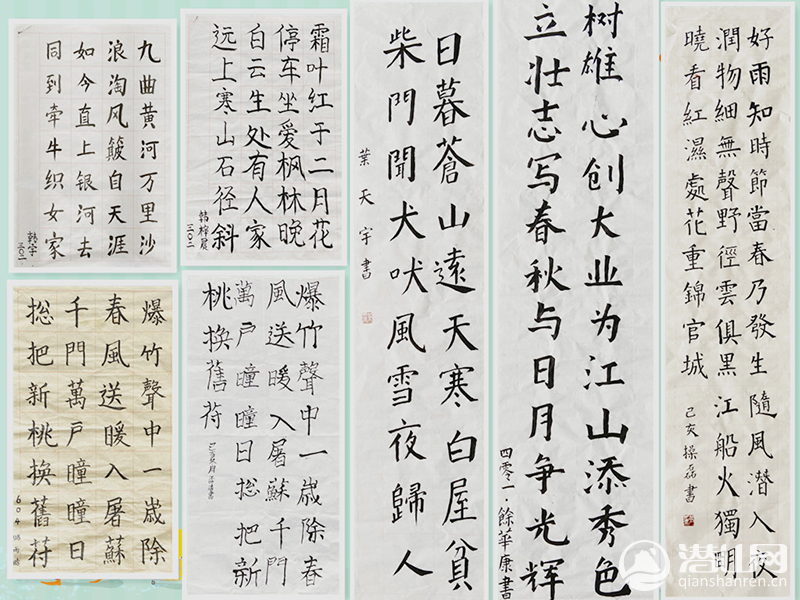 九曲黄河万里沙
浪淘风簸自天涯
如今直上银河去
同到牵牛织女家
韩宇
三〇一
远上寒山石径斜
白云生处有人家
停车坐爱枫林晚
霜叶红于二月花
韩梓晨
三〇二
日暮蒼山遠天寒白屋貧
柴門聞犬吠風雪夜歸人
葉天宇書
树雄心创大业为江山添秀色
立壮志写春秋与日月争光辉
四零一·餘華康書
好雨知時節當春乃發生隨風潛入夜
潤物細無聲野徑雲俱黑江船火獨明
曉看紅濕處花重錦官城
己亥操磊書
爆竹聲中一歲除
春風送暖入屠蘇
千門萬戶曈曈日
総把新桃換舊符
604
爆竹聲中一歲除春
風送暖入屠蘇千門
萬戶曈曈日総把新
桃換舊符
潜山网
qianshanren.cn